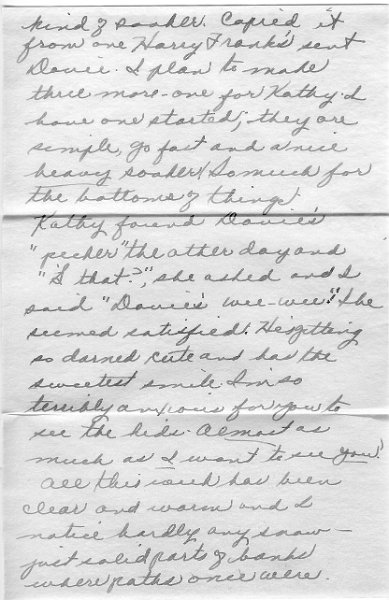 kind of soaker. Copied it
from one Harry & Frank's sent
Davie. I plan to make
three more - one for Kathy. I
have one started; they are
simple, go fast and a nice
heavy soaker! So much for
the bottoms of things!
Kathy found Davie's
"pecker" the other day and
"'S that?", she asked and I
said "Davie's wee-wee"! She
seemed satisfied! He's getting
so darned cute and has the
sweetest smile. I'm so
terribly anxious for you to
see the kids. Almost as
much as I want to see you!
All this week has been
clear and warm and I
notice hardly any snow -
just solid parts of banks
where paths once were.